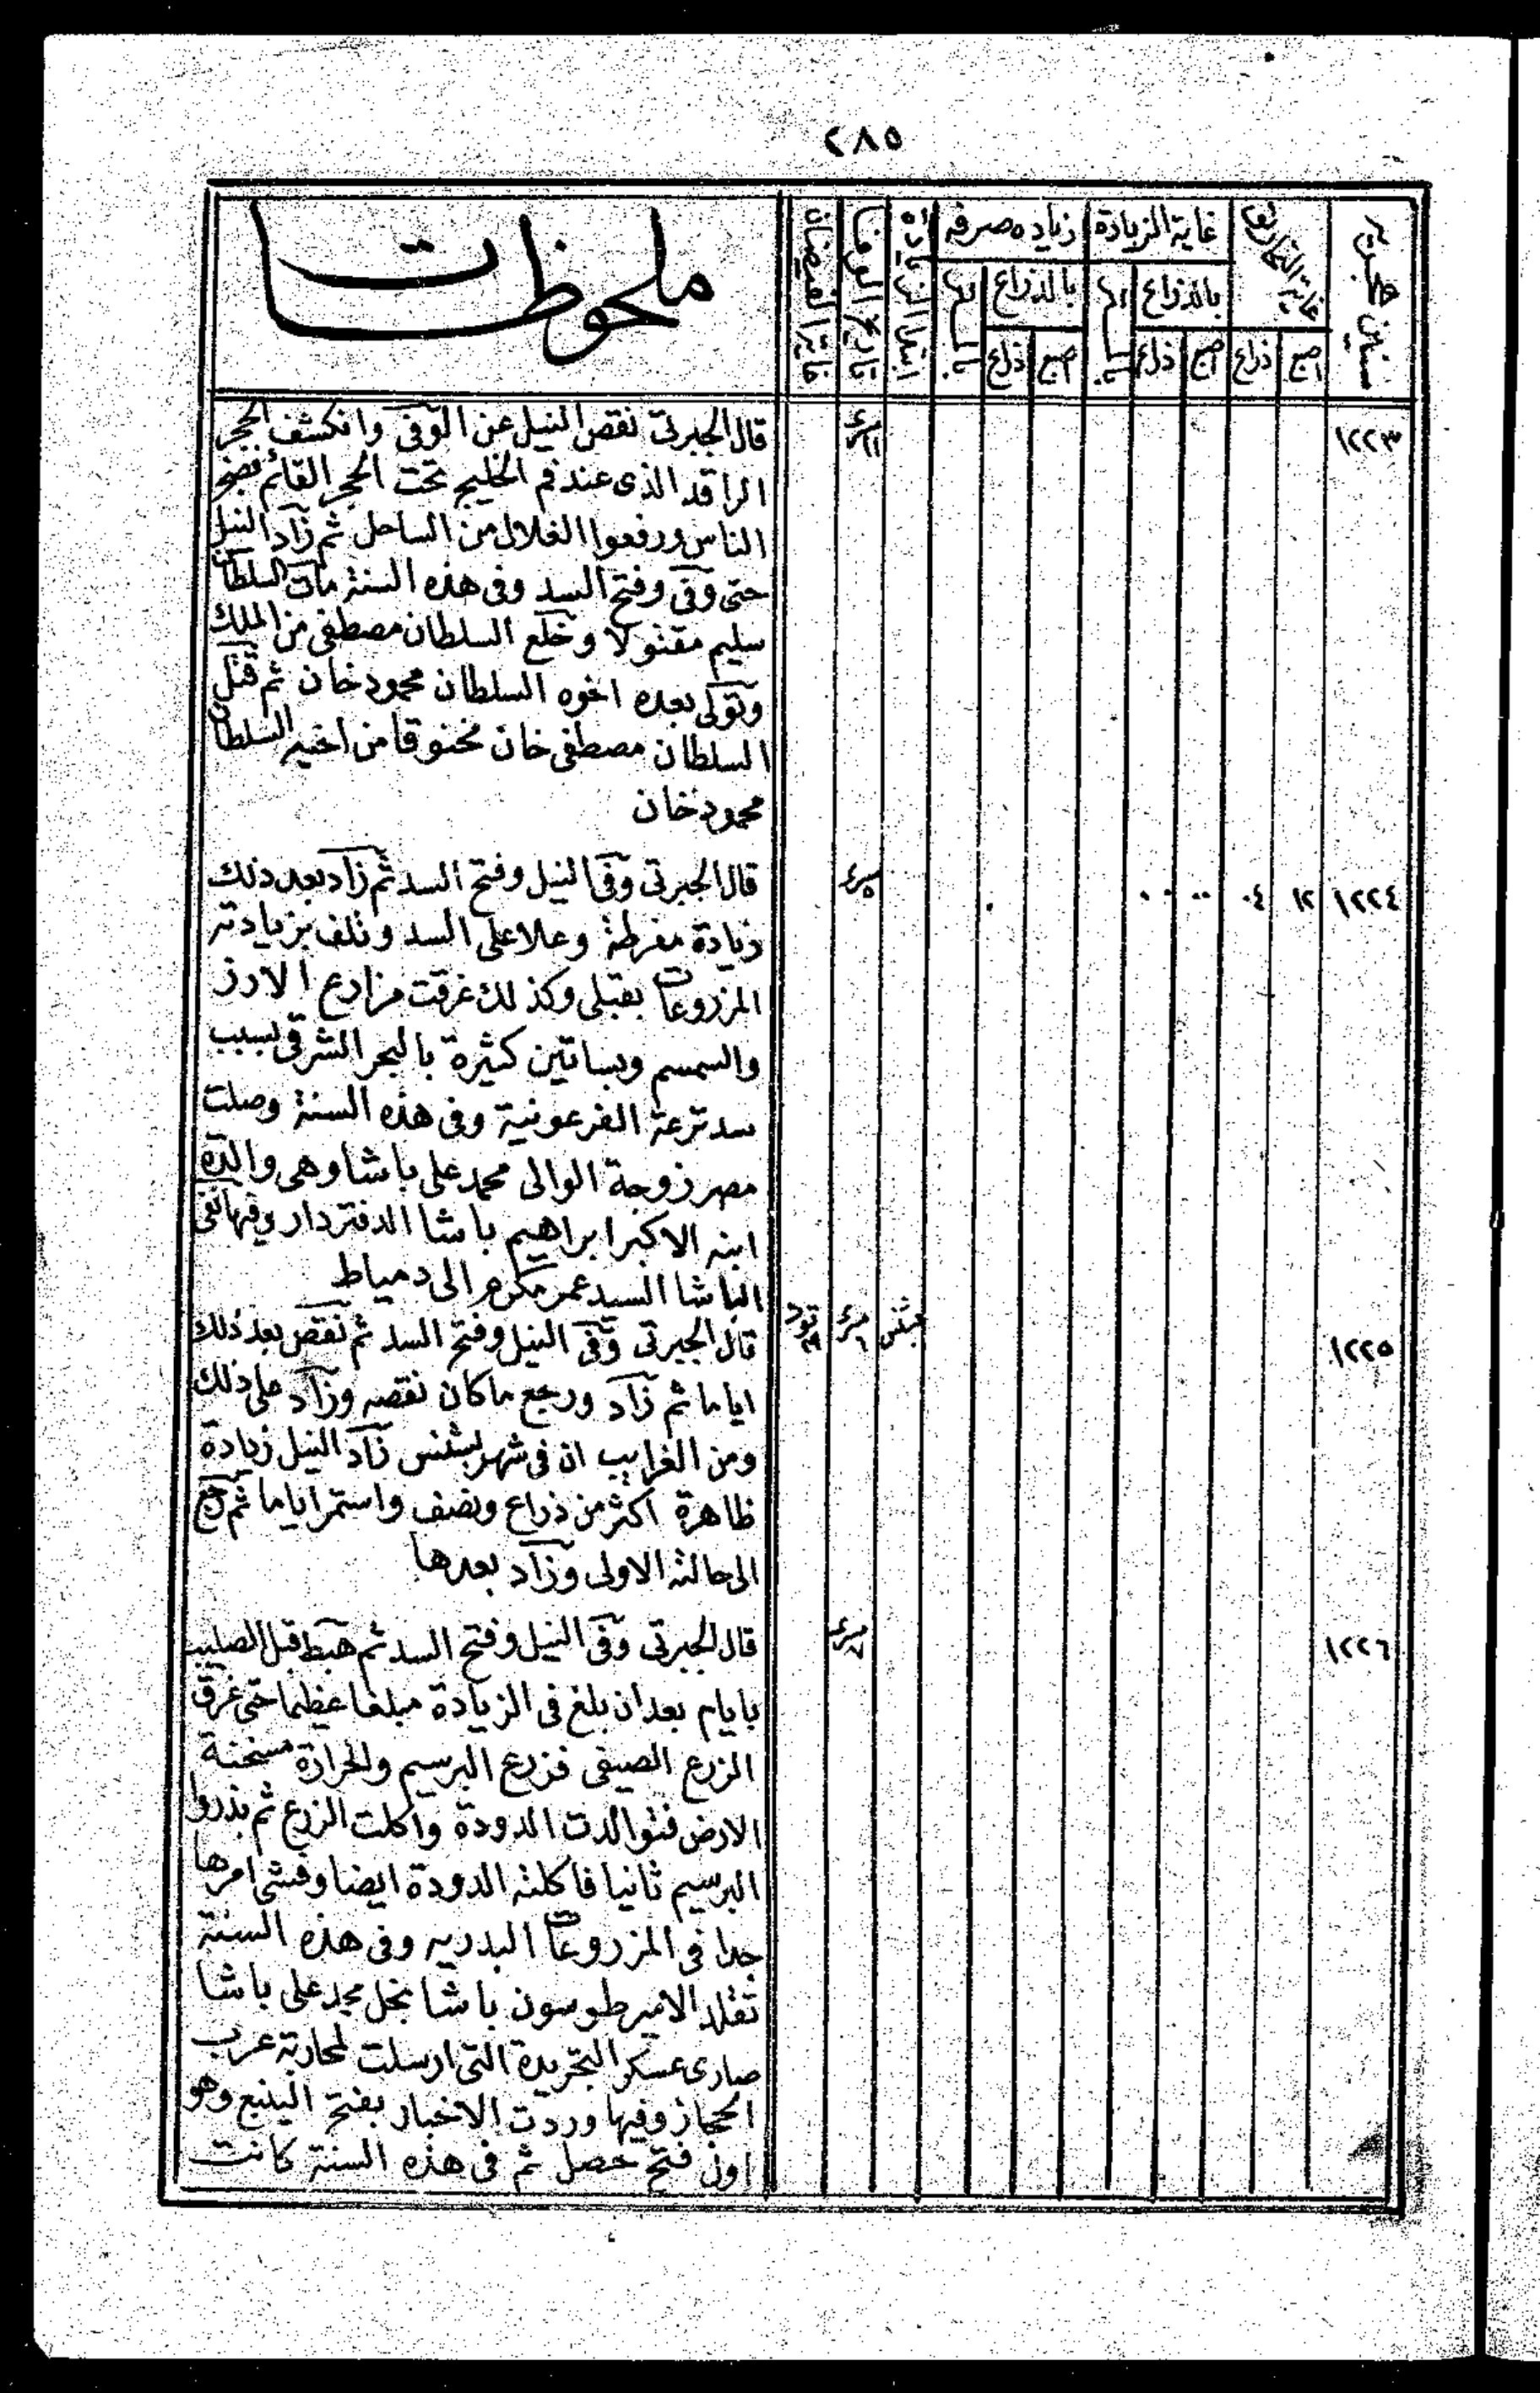 ٢٨٥
سنين هجرية
غاية التحاريق
غاية الزيادة
زياده صرفه
ابتدا الزيادة
تاريخ الوفا
غاية الفيضان
ملحوظات
بالذراع
بالذراع
اصبع ذراع اصبع ذراع اصبع ذراع
١٢٢٣
مسرى ١١
قال الجبرتى نقص النيل عن الوفى وانكشف الحجر
الراقد الذى عند فم الخليج تحت الحجر القائم فضج
الناس ورفعوا الغلال من الساحل ثم زاد النيل
حتى وفى وفتح السد وفى هذه السنة مات السلطان
سليم مقتولا وخلع السلطان مصطفى من الملك
وتولى بعده اخوه السلطان محمود خان ثم قتل
السلطان مصطفى خان مخنوقا من اخيه السلطان
محمود خان
١٢٢٤ ١٢ ٠٤ ٠٠ ٠٠ ٠
مسرى ٥
قال الجبرتى وفى النيل وفتح السد ثم زاد بعد ذلك
زيادة مفرطة وعلا على السد وتلف بزيادته
المزروعات بقبلى وكذلك غرقت مزارع الارز
والسمسم وبساتين كثيرة بالبحر الشرقى بسبب
سد ترعة الفرعونية وفى هذه السنة وصلت
مصر زوجة الوالى محمد على باشا وهى والدة
ابنه الاكبر ابراهيم باشا الدفتردار وفيها نفى
الباشا السيد عمر مكرم الى دمياط
١٢٢٥
بشنس
مسرى ٦
قال الجبرتى وفى النيل وفتح السد ثم نقص بعد ذلك
اياما ثم زاد ورجع ماكان نقصه وزاد على ذلك
ومن الغرايب ان فى شهر بشنس زاد النيل زيادة
ظاهرة اكثر من ذراع ونصف واستمر اياما ثم رجع
الى حالته الاولى وزاد بعدها
١٢٢٦
مسرى ٧
قال الجبرتى وفى النيل وفتح السد ثم هبط قبل الصليب
بايام بعد ان بلغ فى الزيادة مبلغا عظيما حتى غرق
الزرع الصيفى فزرع البرسيم والحرارة مسخنة
الارض فتوالدت الدودة واكلت الزرع ثم بذروا
البرسيم ثانيا فاكلته الدودة ايضا وفشى امرها
جدا فى المزروعات البدريه وفى هذه السنة
تقلد الامير طوسون باشا نجل محمد على باشا
صارى عسكر التجريدة التى ارسلت لمحاربة عرب
الحجاز وفيها وردت الاخبار بفتح الينبع وهو
اول فتح حصل ثم فى هذه السنة كانت